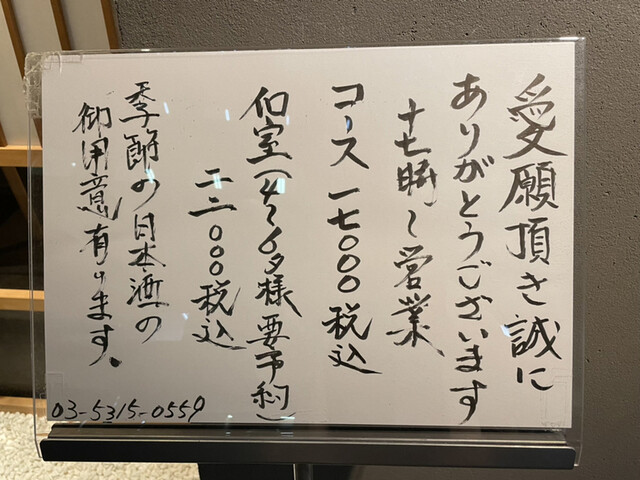 愛願頂き誠に
ありがとうございます
十七時〜営業
コース一七〇〇〇税込
和室(4〜6名様要予約)
二二〇〇〇税込
季節の日本酒の
御用意有ります。
03-5315-0559